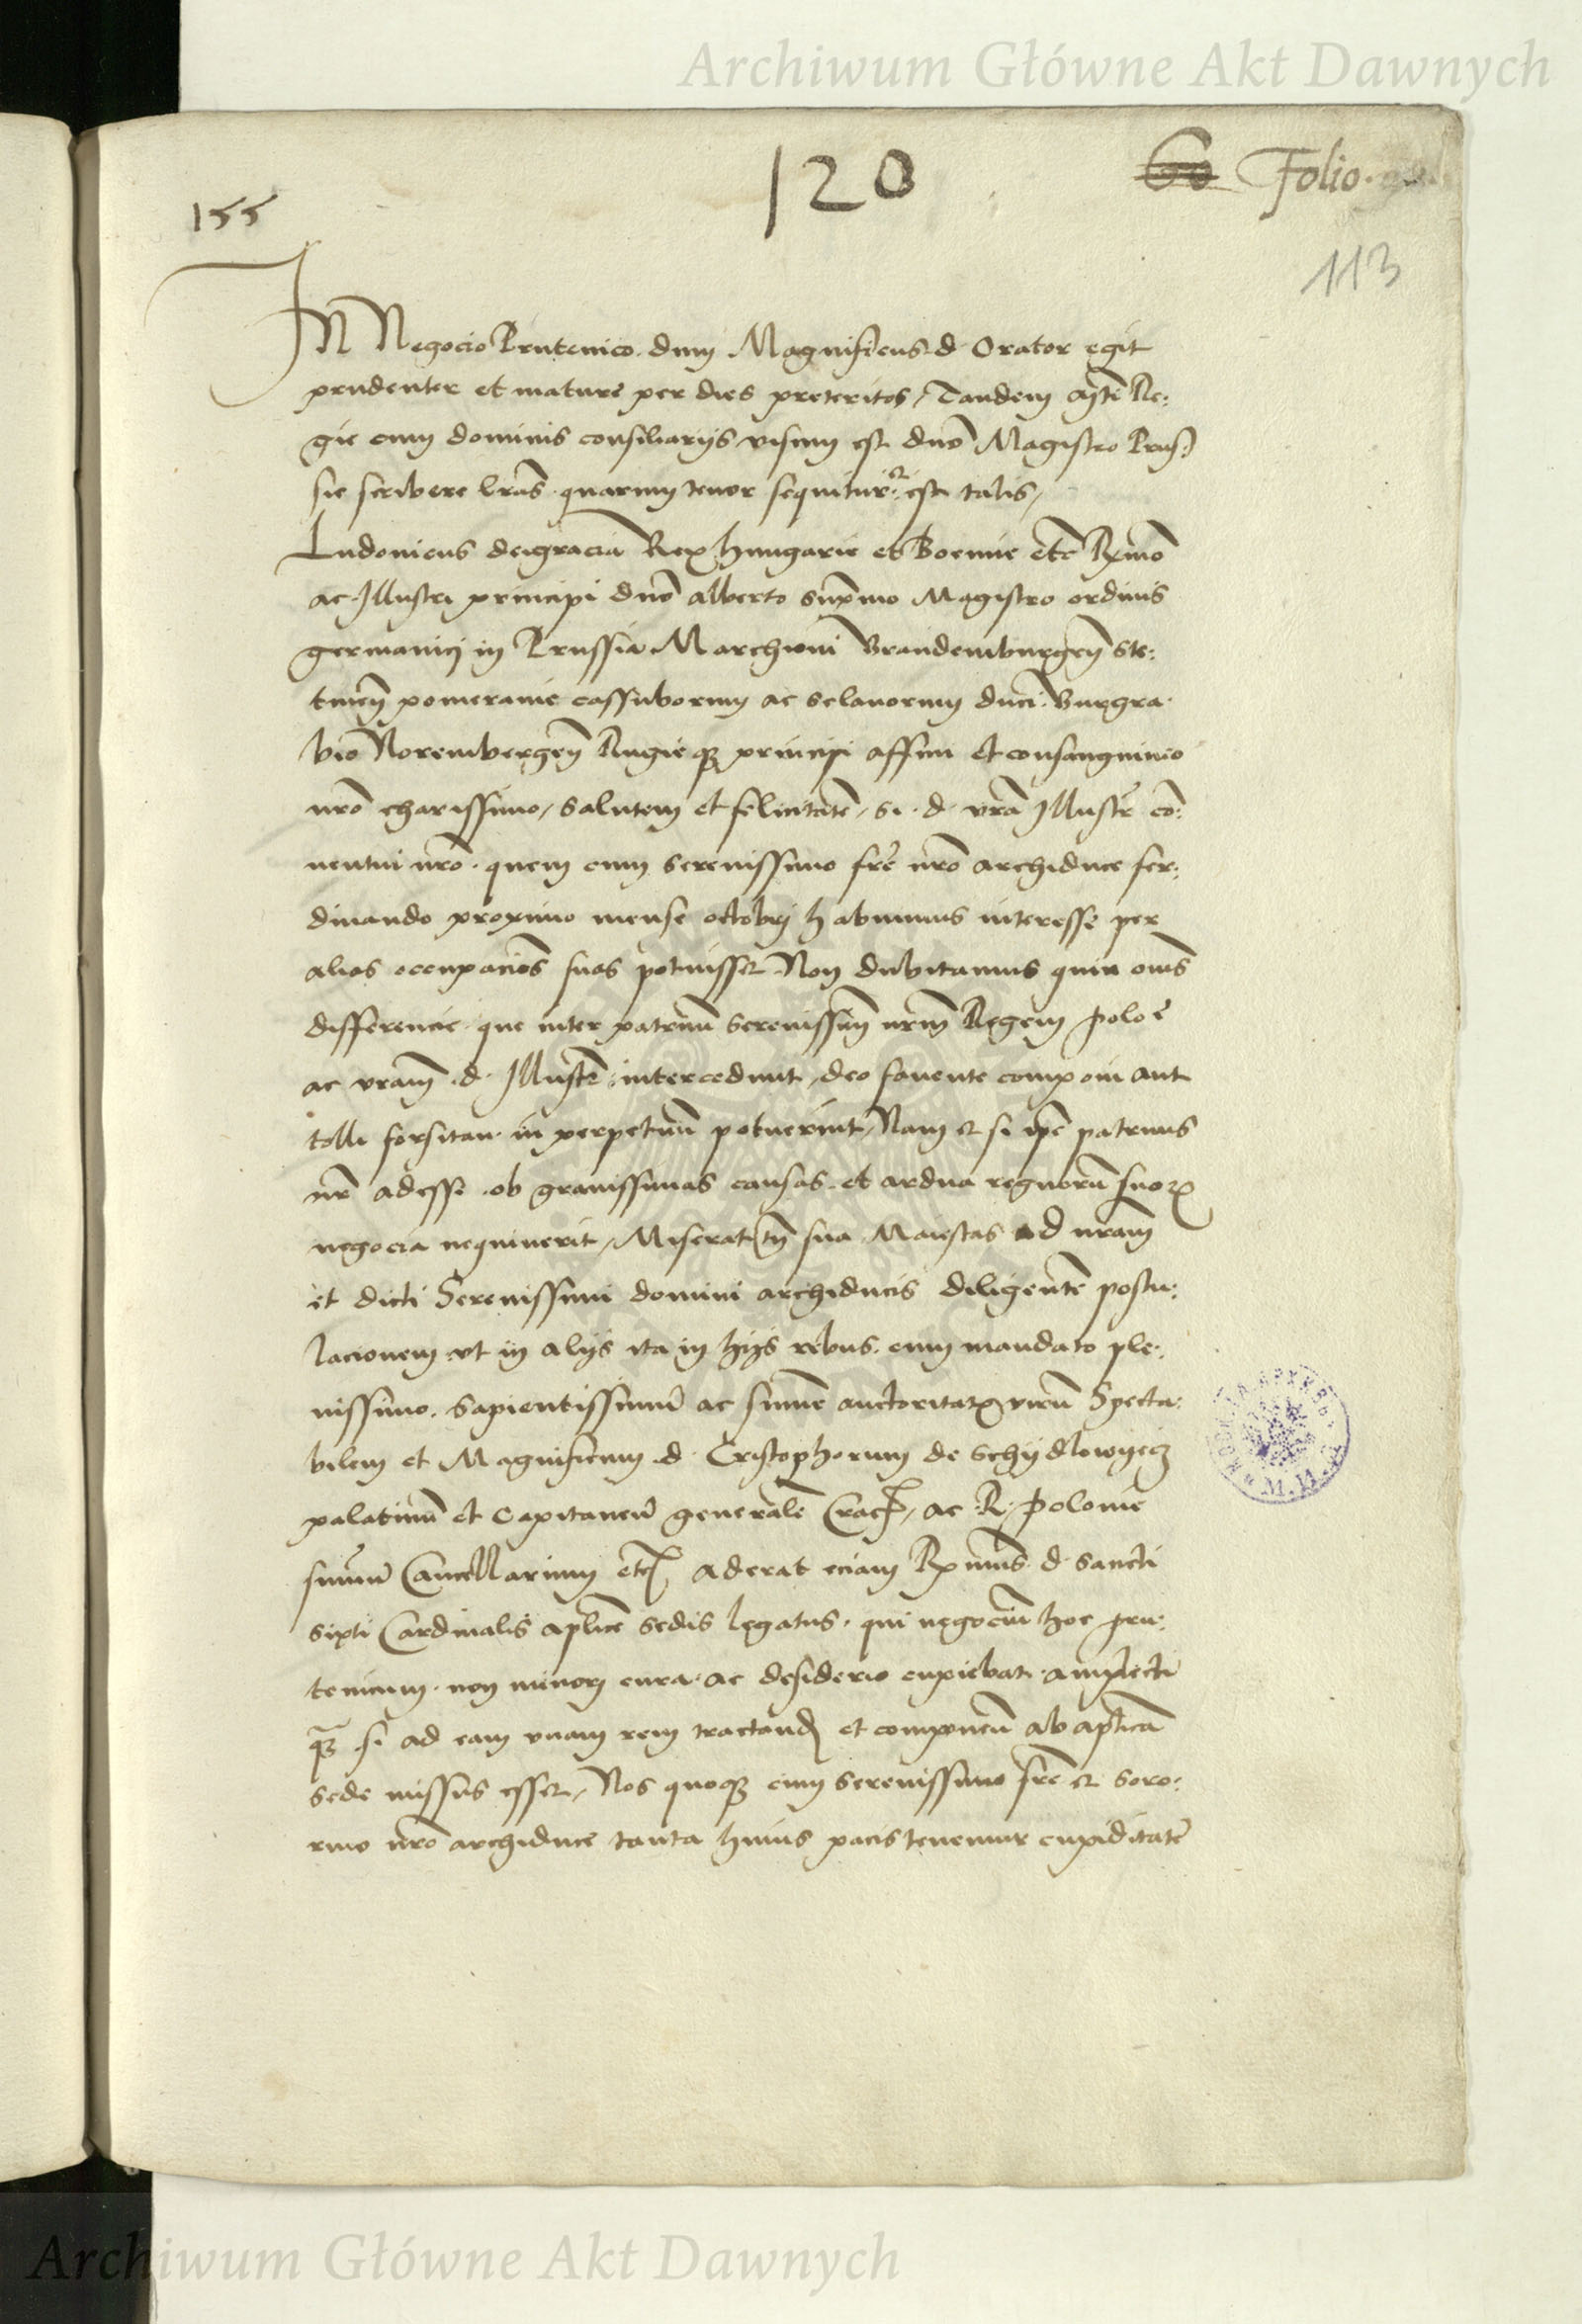 Archiwum Główne Akt Dawnych
120
Folio
155
113
IN Negocio Prutenico. dum Magnificus d. Orator egit
prudenter et mature per dies preteritos, Tandem Mti Re:
gie cum dominis consiliarijs visum est dno Magistro Prus:
sie scribere lras. quarum tenor sequitur. et est talis,
Ludouicus deigracia Rex hungarie et Boemie etc Rmo
ac Illustri principi dno alberto supmo Magistro ordinis
germanici in Prussia Marchioni Brandemburgen ste:
tinen pomeranie cassuborum ac sclauorum duci. Burgra.
bio Norembergen Rugieq principi affini et consanguineo
nro charissimo, salutem et felicitate, si. d. vra Illustr co:
uentui nro. quem cum serenissimo fre nro archiduce fer:
dinando proximo mense octobrj habuimus interesse per
alias occupacioes suas potuisset Non dubitamus quin oms
differencie que inter patruu serenissim nrm Regem polo e
ac vram d. Illustr intercedunt, deo fauente componi aut
tolli forsitan in perpetuu potuerint, Nam et si ipe patruus
nr adesse ob grauissimas causas. et ardua regnoru suor
negocia nequiuerit, Miserat tn sua Maiestas ad nram
et dicti Serenissimi domini archiducis diligente postu:
lacionem vt in alijs ita in hijs rebus. cum mandato ple:
nissimo. sapientissimu ac summe auctoritatis viru Specta:
bilem et Magnificum d. Cristophorum de schijdlowyecz
palatinu et Capitaneu generale Crac, ac R. Polonie
summu Cancellarium etc aderat eciam Rmus d. sancti
sixti Cardinalis aplice sedis legatus. qui negociu hoc pru:
tenicum. non minorj cura. ac desiderio cupiebat amplecti
q si ad eam vnam rem tractand et componen ab aplica
sede missus esset, Nos quoq cum serenissimo fre et soro:
rino nro archiduce tanta huius pacis tenemur cupiditate
Archiwum Główne Akt Dawnych